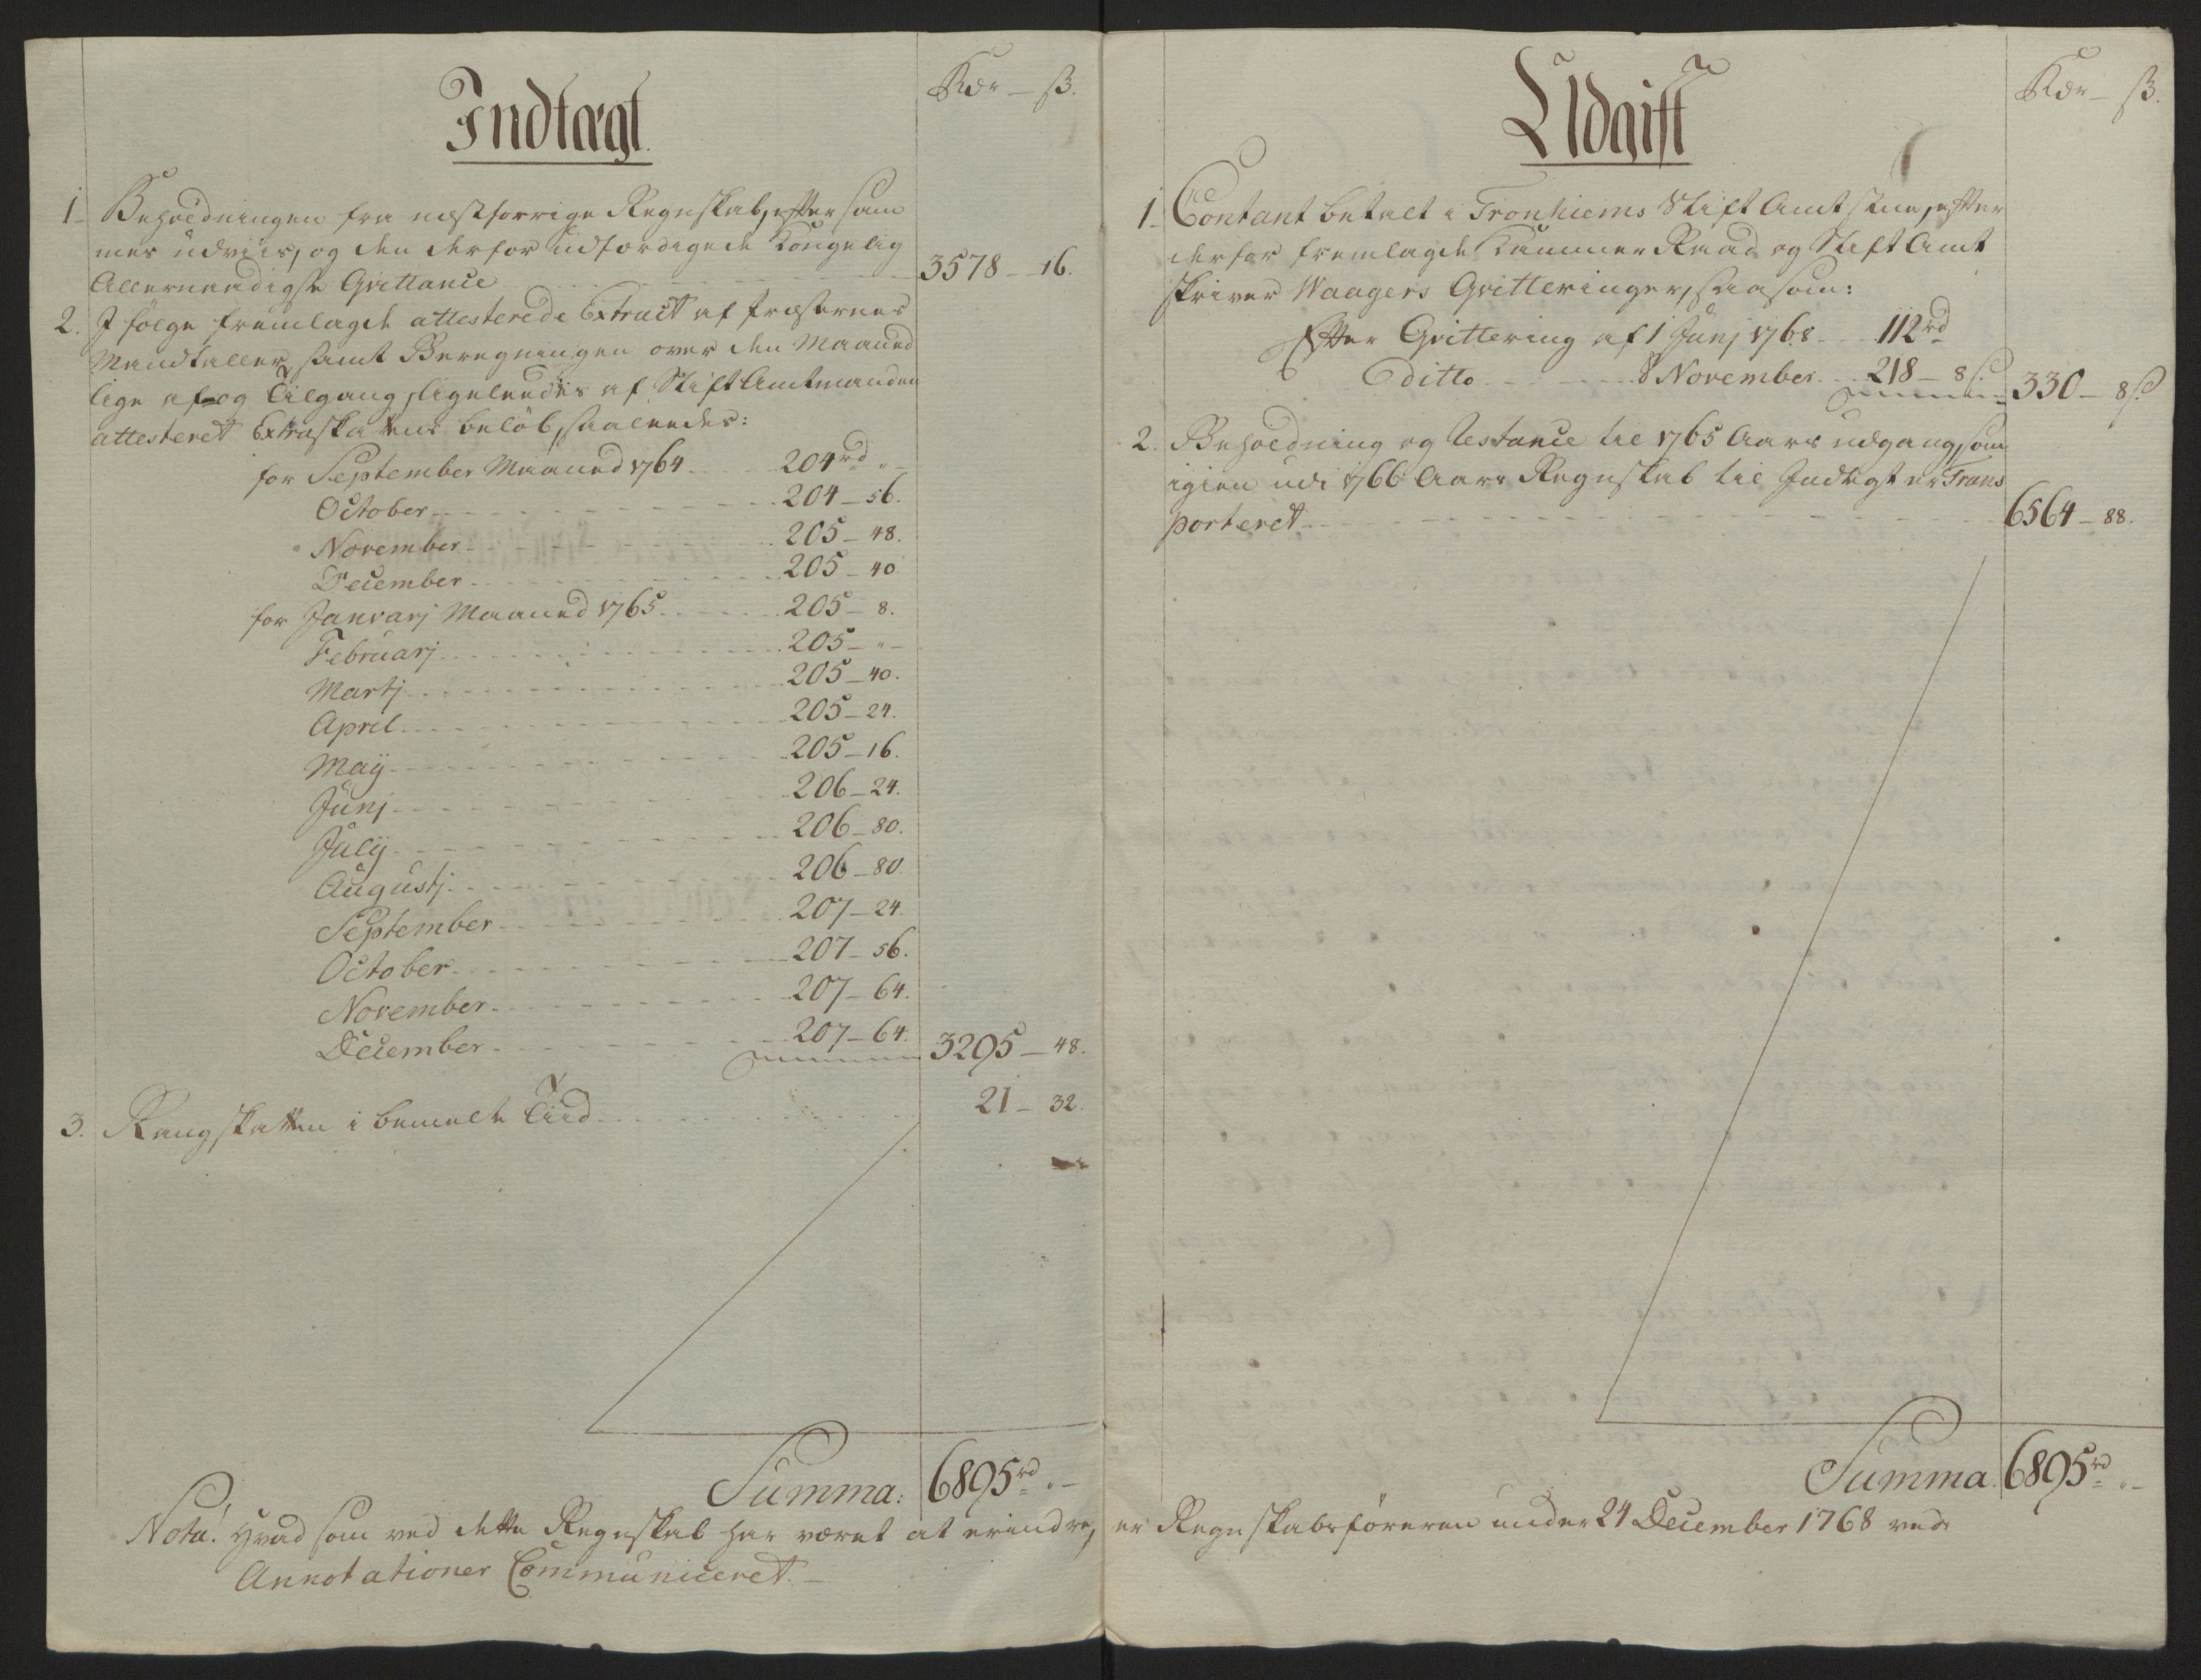 Indtægt.
Rdr – ß.
1. Beholdningen fra næstforrige Regnskab, efter sam
mes udviis, og den derfor udfærdigede Kongelig
Allernaadigste Qvittance 3578 – 16.
2. I følge fremlagde attesterede Extract af Præsternes
Mandtaller, samt Beregningen over den Maaned
lige af- og Tilgang, ligeleedes af StiftAmtmanden
attesteret Extraskattens beløb, saaleedes:
for September Maaned 1764 204rd „ –
October 204 – 56.
November 205 – 48.
December 205 – 40
for Janvarj Maaned 1765 205 – 8.
Februarj 205 – „ –
Martj 205 – 40.
April 205 – 24.
Maij 205 – 16.
Junj 206 – 24.
Julij 206 – 80.
Augustj 206 – 80.
September 207 – 24.
October 207 – 56.
November 207 – 64.
December 207 – 64. 3295 – 48.
3. Rangskatten i bemelte Tiid 21 – 32.
Summa: 6895rd „ –
Udgift
Rdr – ß.
1. Contant betalt i Tronhiems Stift Amtstue, efter
derfor fremlagde Kammer Raad og Stift Amt
skriver Waagers Qvitteringer, saasom:
Efter Qvittering af 1 Junj 1768 112rd
ditto 8 November 218 – 8ß. 330 – 8ß
2. Beholdning og Restance til 1765 Aars udgang, som
igien udi 1766 Aars Regnskab til Indtægt er Trans
porteret 6564 – 88.
Summa. 6895rd „ –
Nota! Hvad som ved dette Regnskab har været at erindre, er Regnskabsføreren under 24 December 1768 ved
Annotationer Communiceret. –